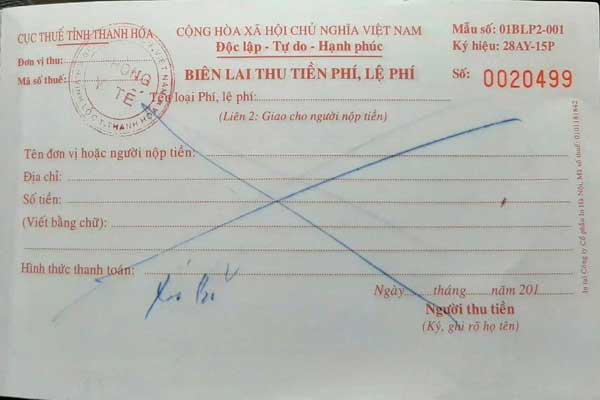 CỤC THUẾ TỈNH THANH HÓA
CỘNG HÒA XÃ HỘI CHỦ NGHĨA VIỆT NAM
Mẫu số: 01BLP2-001
Đơn vị thu:
Độc lập - Tự do - Hạnh phúc
Ký hiệu: 28AY-15P
Mã số thuế:
BIÊN LAI THU TIỀN PHÍ, LỆ PHÍ
Số: 0020499
PHÒNG
Y TẾ
T. THANH HÓA
Tên loại Phí, lệ phí:
(Liên 2: Giao cho người nộp tiền)
Tên đơn vị hoặc người nộp tiền:
Địa chỉ:
Số tiền:
(Viết bằng chữ):
Hình thức thanh toán:
Ngày tháng năm 201
Người thu tiền
(Ký, ghi rõ họ tên)
In tại Công ty Cổ phần In Hà Nội, Mã số thuế: 0101181842